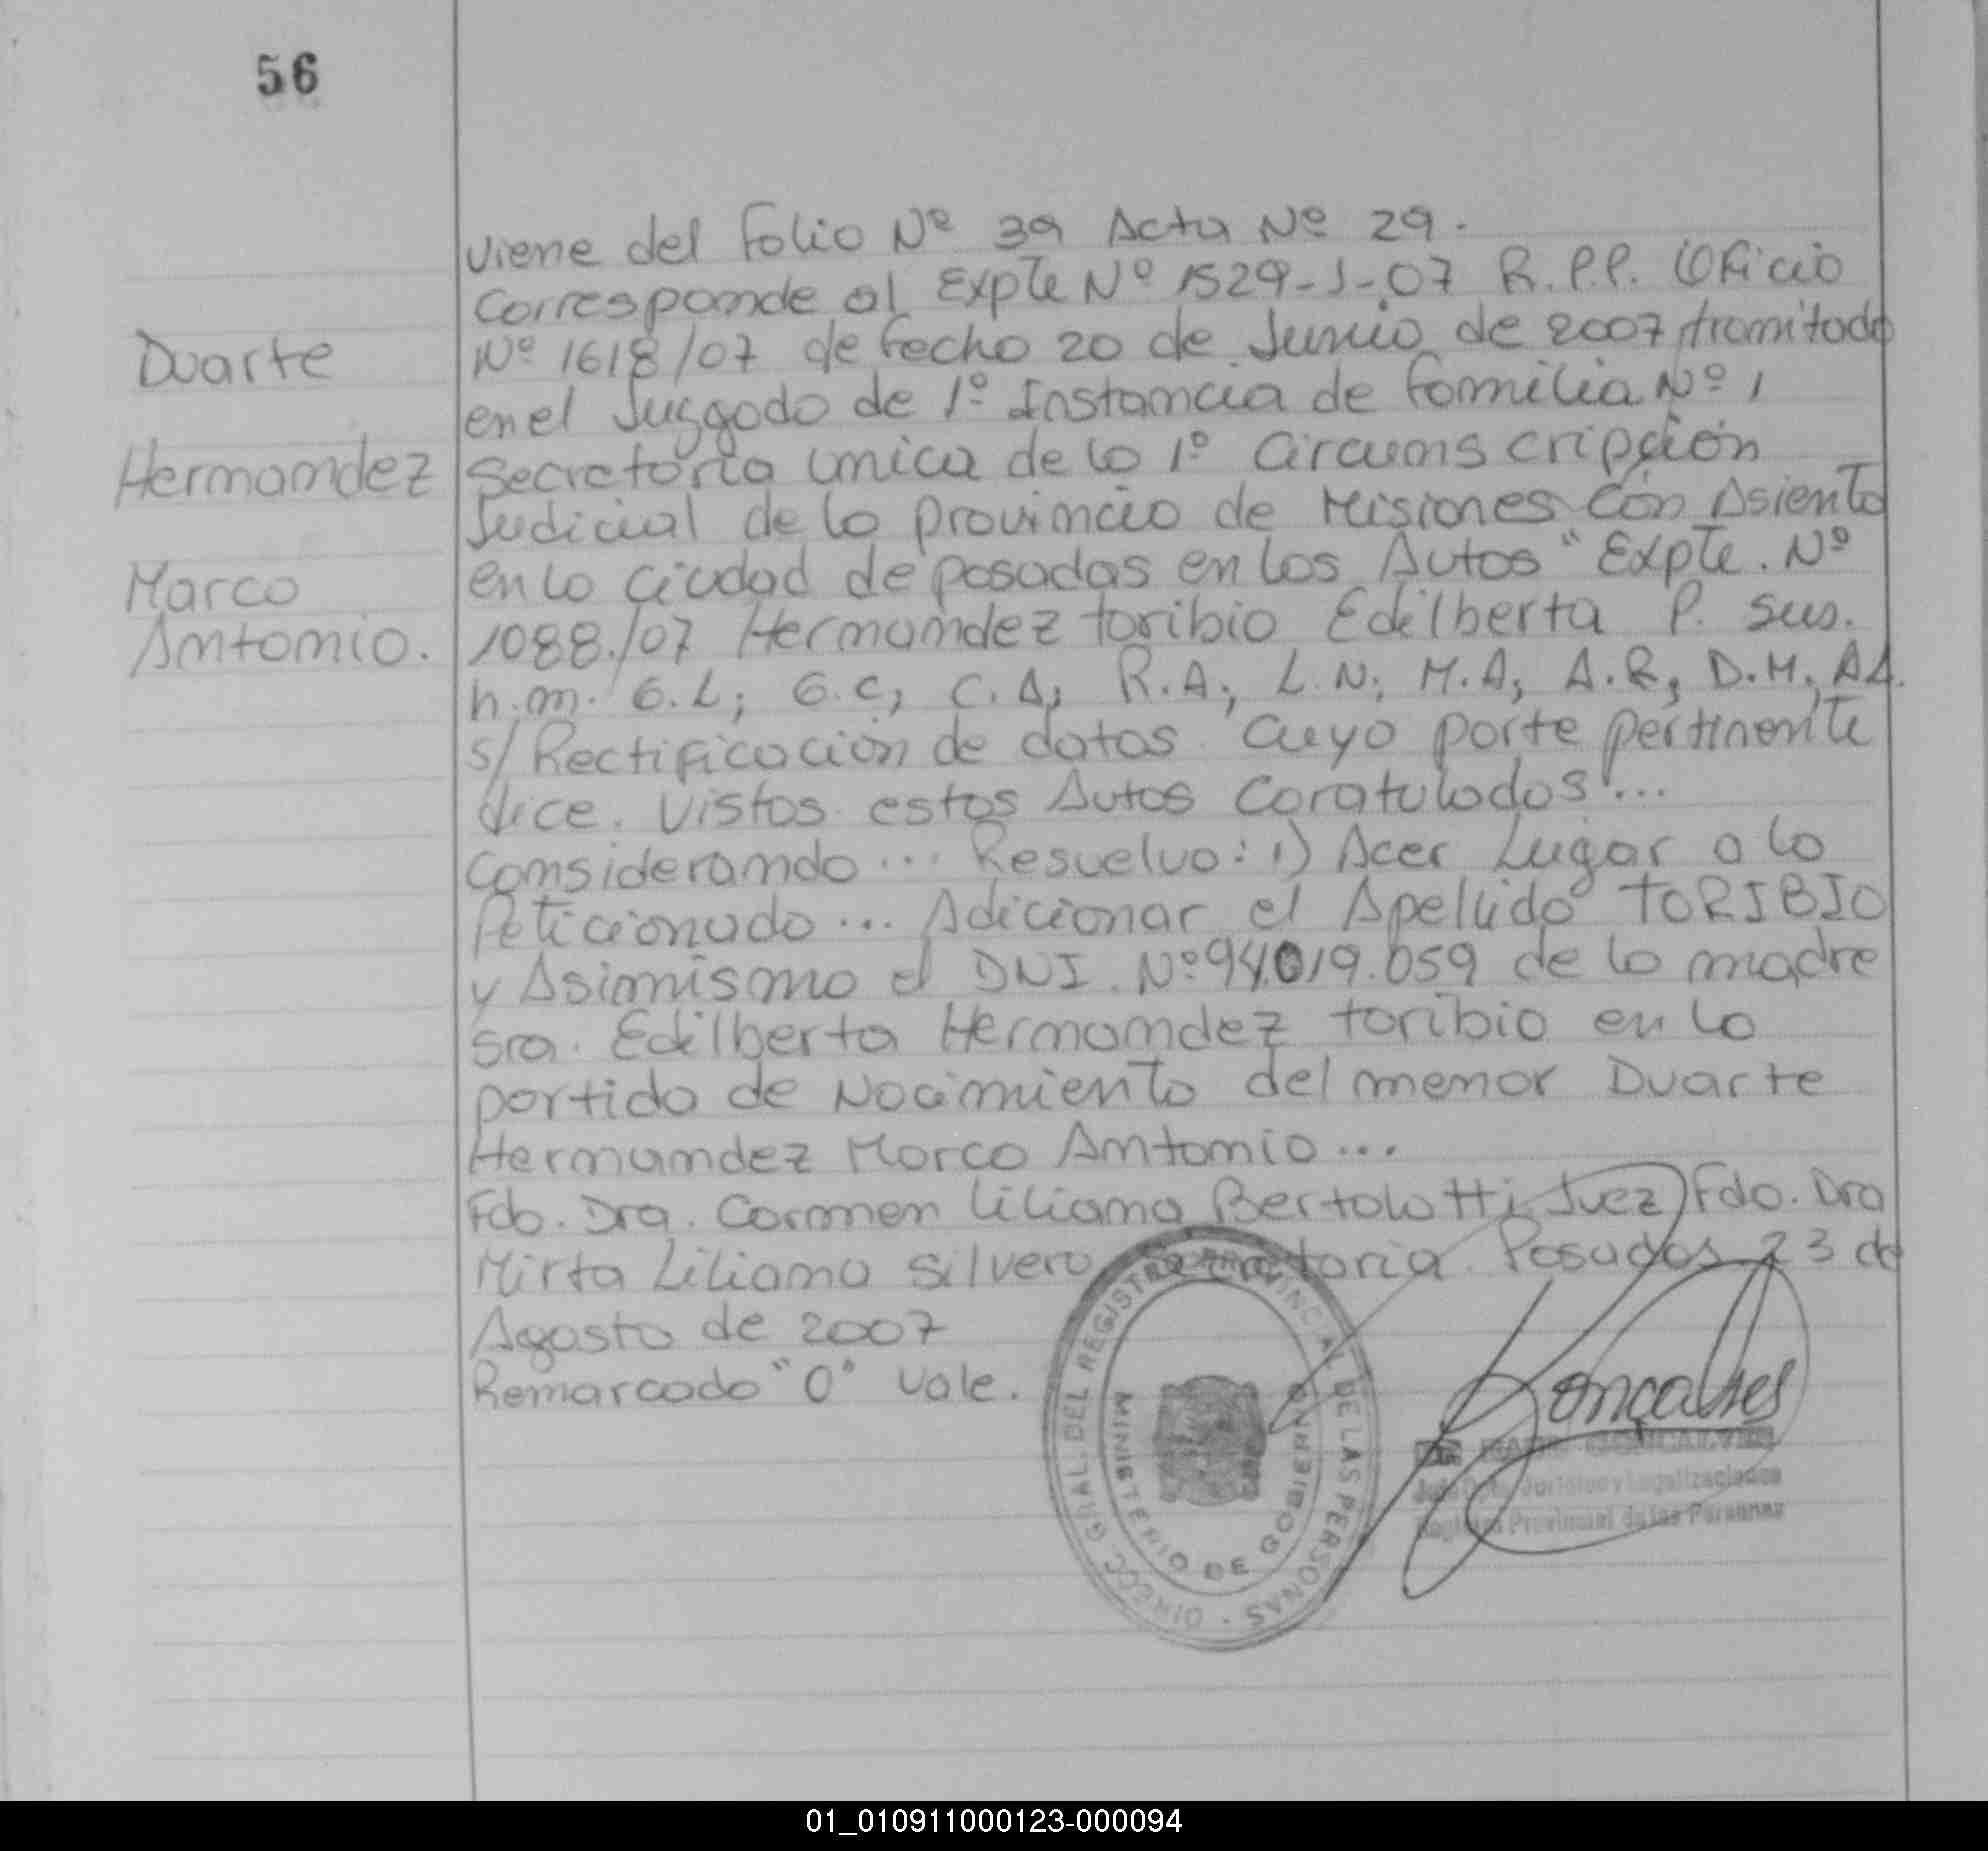 56
Duarte
Hernandez
Marco
Antonio.
viene del Folio Nº 39 Acta Nº 29.
Corresponde al Expte Nº 1529-J-07 R.P.P. Oficio
Nº 1618/07 de fecha 20 de Junio de 2007 tramitado
en el Juzgado de 1º Instancia de familia Nº 1
Secretaria unica de la 1º Circumscripción
Judicial de la provincia de Misiones Con Asiento
en la Ciudad de posadas en los Autos "Expte. Nº
1088./07 Hernandez toribio Edilberta P. sus.
h.m. G.L; G.C, C.A, R.A, L.N; M.A, A.R, D.M, A.A.
s/ Rectificación de datos" Cuyo parte pertinente
dice. Vistos estos Autos Caratulados"...
Considerando... Resuelvo: 1) Acer Lugar a lo
Peticionado... Adicionar el Apellido TORIBIO
y Asimismo el DNI. Nº 94.019.059 de la madre
Sra. Edilberta Hernandez toribio en la
partida de Nacimiento del menor Duarte
Hernandez Marco Antonio...
Fdo. Dra. Carmen Liliana Bertolotti Juez) Fdo. Dra
Mirta Liliana Silvero Secretaria. Posadas 23 de
Agosto de 2007
Remarcado "0" Vale.
DIRECC. GRAL. DEL REGISTRO PROVINCIAL DE LAS PERSONAS
MINISTERIO DE GOBIERNO
Gonçalves
GONCALVES
Jurídico y Legalizaciones
Registro Provincial de las Personas
01_010911000123-000094